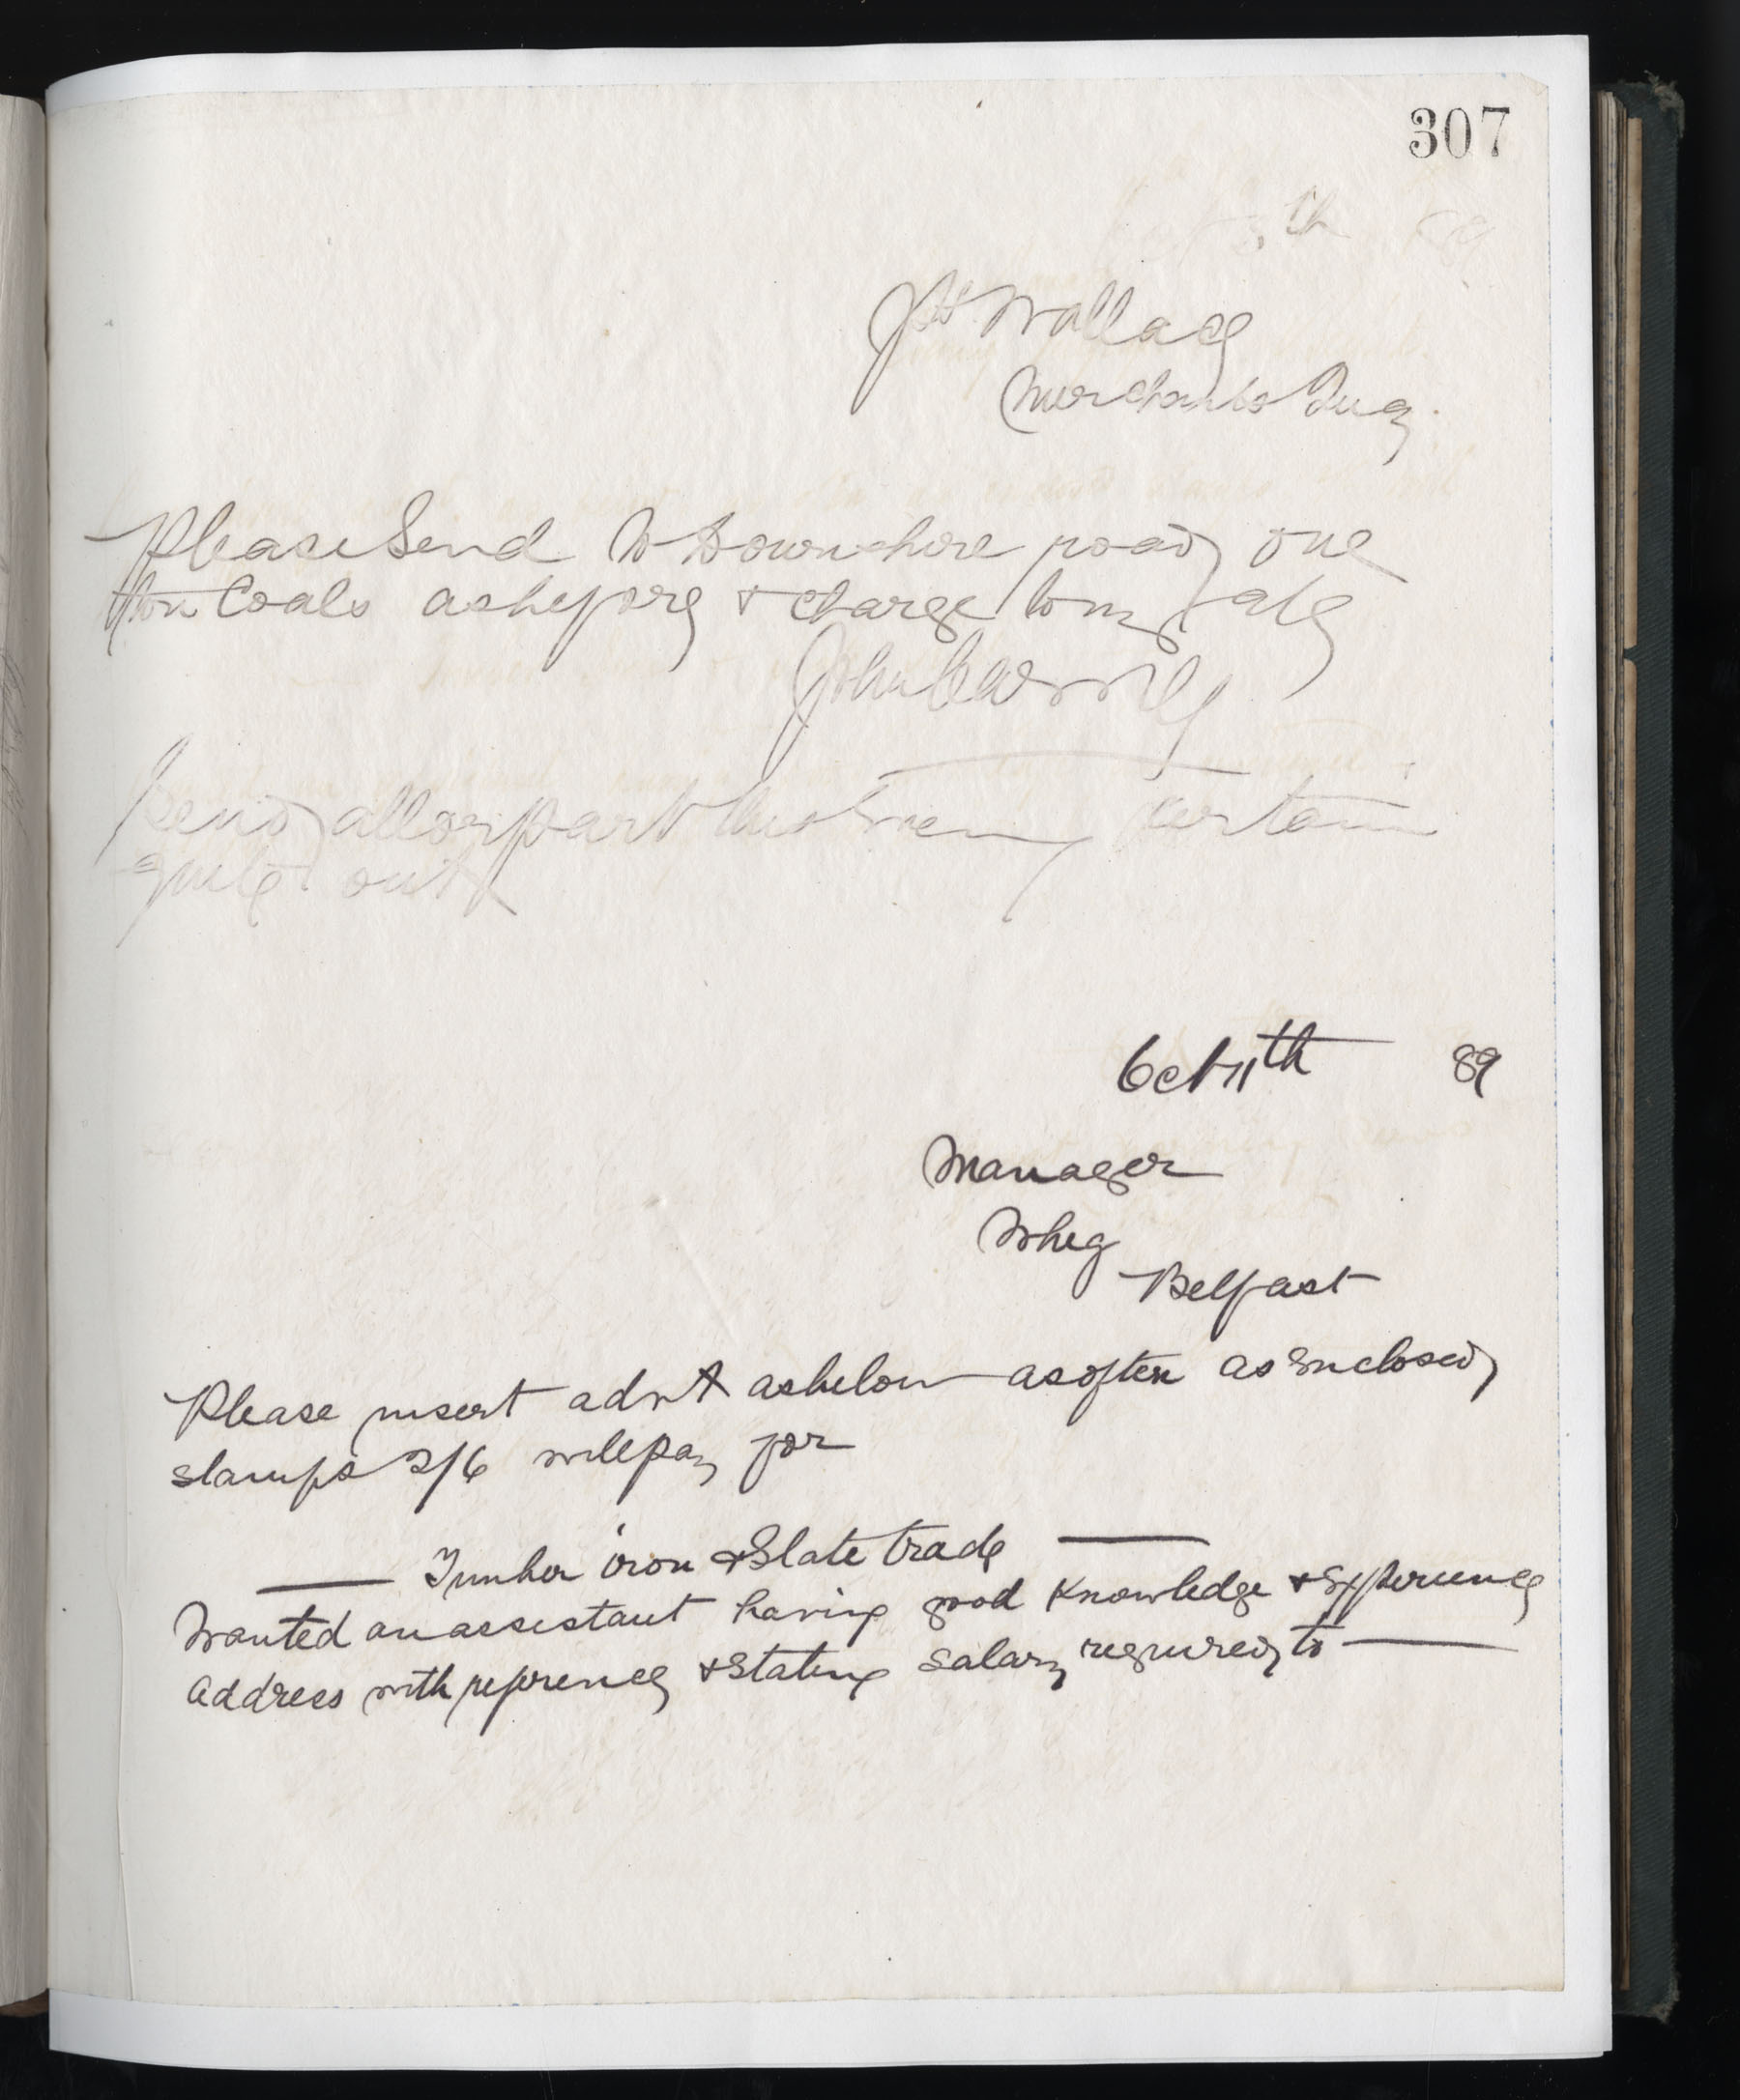 307
th 89
Jos Wallace
Merchants Quay
Please Send to Downshire road one
ton Coals as before & charge to my a/c
John
Send all or part this evening certain
quite out
Oct 11th 89
Manager
Whig
Belfast
Please insert advt as below as often as Enclosed
stamps 2/6 will pay for
Timber iron & Slate trade
Wanted an assistant having good Knowledge & Experience
Address with reference & Stating Salary required to